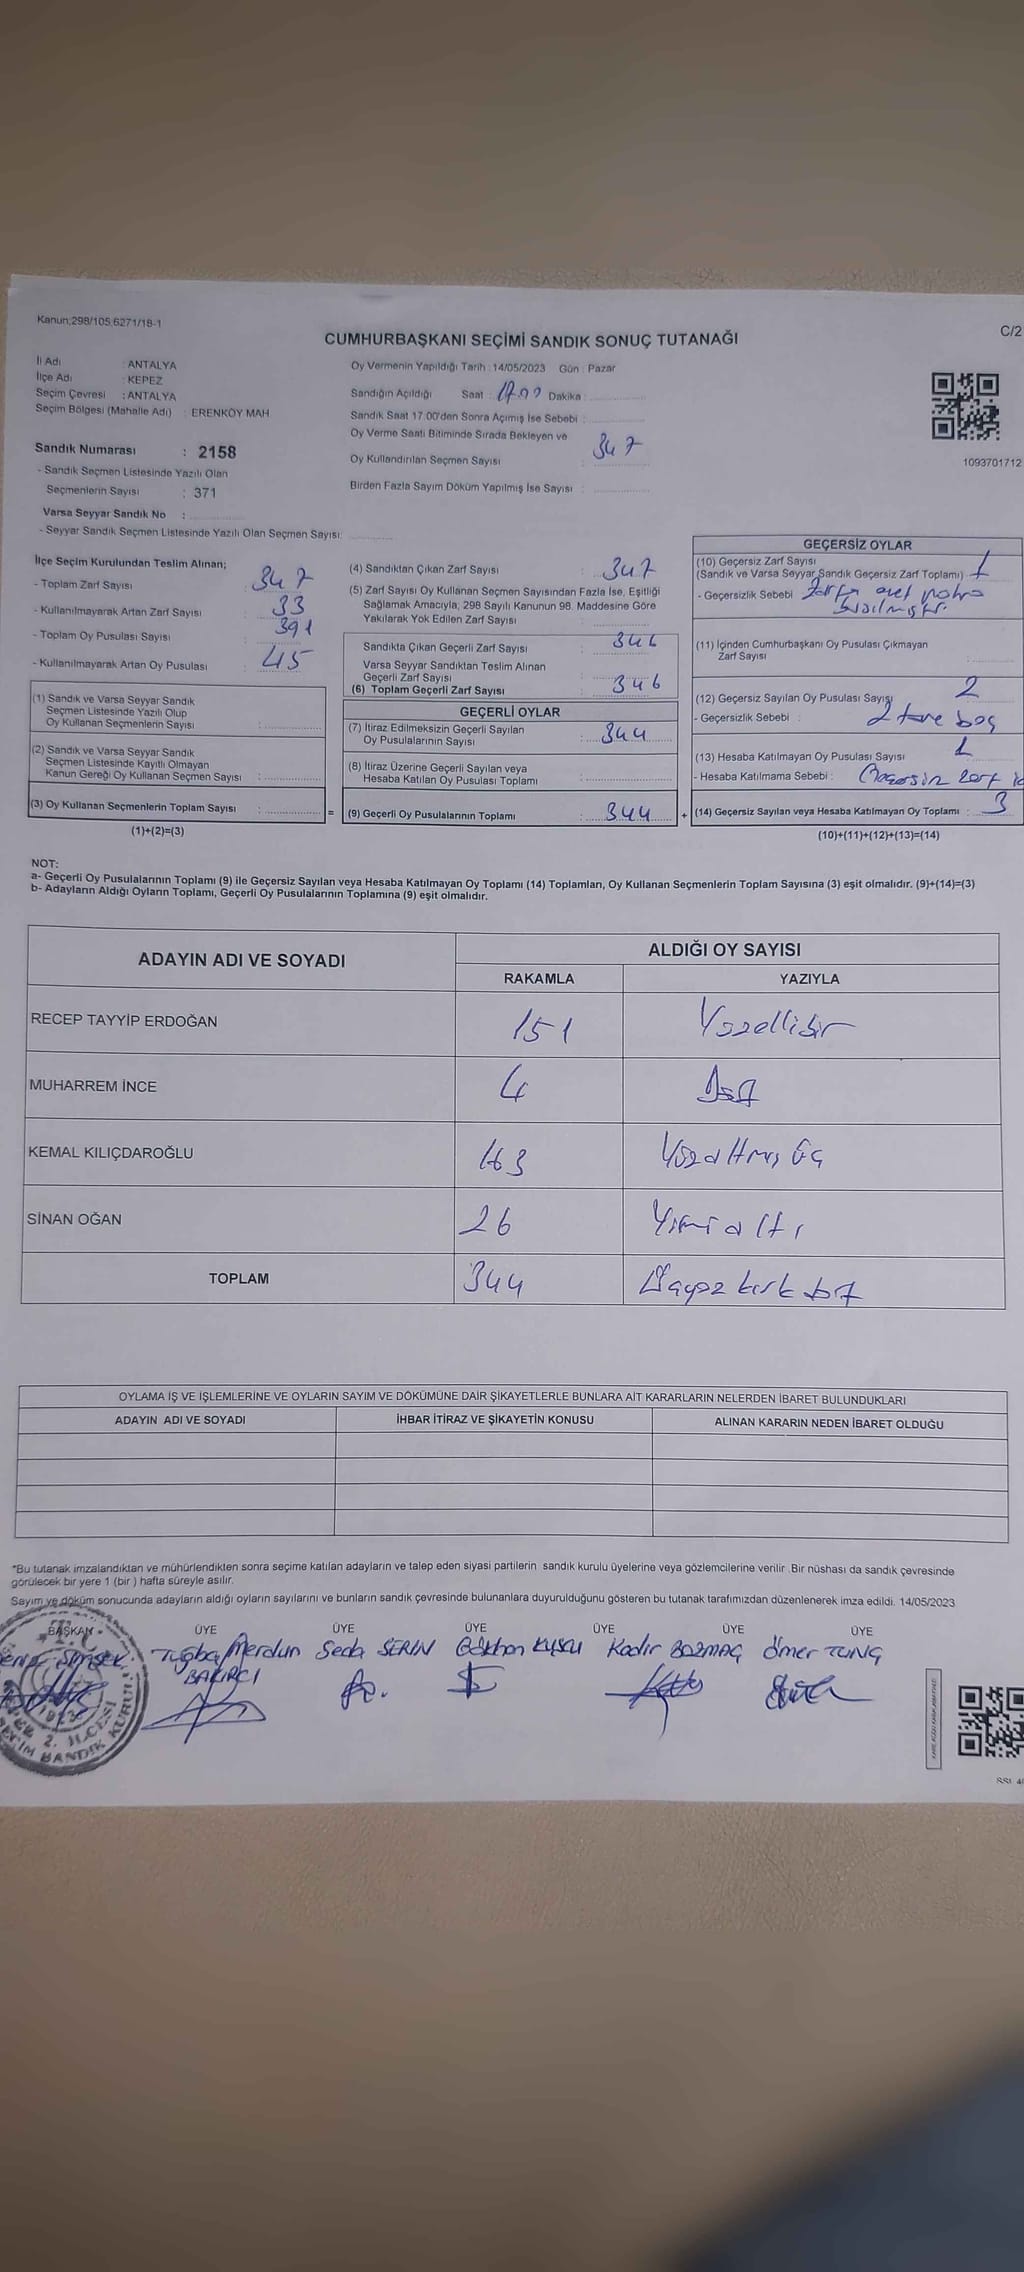 Kanun;298/105,6271/18-1
C/2
CUMHURBAŞKANI SEÇİMİ SANDIK SONUÇ TUTANAĞI
İl Adı : ANTALYA
İlçe Adı : KEPEZ
Seçim Çevresi : ANTALYA
Seçim Bölgesi (Mahalle Adı) : ERENKÖY MAH
Sandık Numarası : 2158
- Sandık Seçmen Listesinde Yazılı Olan
Seçmenlerin Sayısı : 371
Varsa Seyyar Sandık No :
- Seyyar Sandık Seçmen Listesinde Yazılı Olan Seçmen Sayısı:
Oy Vermenin Yapıldığı Tarih : 14/05/2023 Gün : Pazar
Sandığın Açıldığı Saat : 17.00 Dakika :
Sandık Saat 17.00'den Sonra Açmış İse Sebebi :
Oy Verme Saati Bitiminde Sırada Bekleyen ve
Oy Kullandırılan Seçmen Sayısı : 347
Birden Fazla Sayım Döküm Yapılmış İse Sayısı :
1093701712
İlçe Seçim Kurulundan Teslim Alınan;
- Toplam Zarf Sayısı : 347
- Kullanılmayarak Artan Zarf Sayısı : 33
- Toplam Oy Pusulası Sayısı : 391
- Kullanılmayarak Artan Oy Pusulası : 45
(1) Sandık ve Varsa Seyyar Sandık
Seçmen Listesinde Yazılı Olup
Oy Kullanan Seçmenlerin Sayısı :
(2) Sandık ve Varsa Seyyar Sandık
Seçmen Listesinde Kayıtlı Olmayan
Kanun Gereği Oy Kullanan Seçmen Sayısı :
(3) Oy Kullanan Seçmenlerin Toplam Sayısı :
(1)+(2)=(3)
=
(4) Sandıktan Çıkan Zarf Sayısı : 347
(5) Zarf Sayısı Oy Kullanan Seçmen Sayısından Fazla İse, Eşitliği
Sağlamak Amacıyla; 298 Sayılı Kanunun 98. Maddesine Göre
Yakılarak Yok Edilen Zarf Sayısı :
Sandıkta Çıkan Geçerli Zarf Sayısı : 346
Varsa Seyyar Sandıktan Teslim Alınan
Geçerli Zarf Sayısı :
(6) Toplam Geçerli Zarf Sayısı : 346
GEÇERLİ OYLAR
(7) İtiraz Edilmeksizin Geçerli Sayılan
Oy Pusulalarının Sayısı : 344
(8) İtiraz Üzerine Geçerli Sayılan veya
Hesaba Katılan Oy Pusulası Toplamı :
(9) Geçerli Oy Pusulalarının Toplamı : 344
+
GEÇERSİZ OYLAR
(10) Geçersiz Zarf Sayısı
(Sandık ve Varsa Seyyar Sandık Geçersiz Zarf Toplamı) : 1
- Geçersizlik Sebebi :
(11) İçinden Cumhurbaşkanı Oy Pusulası Çıkmayan
Zarf Sayısı :
(12) Geçersiz Sayılan Oy Pusulası Sayısı : 2
- Geçersizlik Sebebi : 2 tane boş
(13) Hesaba Katılmayan Oy Pusulası Sayısı : 1
- Hesaba Katılmama Sebebi : zarf
(14) Geçersiz Sayılan veya Hesaba Katılmayan Oy Toplamı : 3
(10)+(11)+(12)+(13)=(14)
NOT:
a- Geçerli Oy Pusulalarının Toplamı (9) ile Geçersiz Sayılan veya Hesaba Katılmayan Oy Toplamı (14) Toplamları, Oy Kullanan Seçmenlerin Toplam Sayısına (3) eşit olmalıdır. (9)+(14)=(3)
b- Adayların Aldığı Oyların Toplamı, Geçerli Oy Pusulalarının Toplamına (9) eşit olmalıdır.
ADAYIN ADI VE SOYADI
ALDIĞI OY SAYISI
RAKAMLA YAZIYLA
RECEP TAYYİP ERDOĞAN 151 Yüzellibir
MUHARREM İNCE 4 Dört
KEMAL KILIÇDAROĞLU 163 Yüzaltmış üç
SİNAN OĞAN 26 Yirmi altı
TOPLAM 344 Üçyüz kırk dört
OYLAMA İŞ VE İŞLEMLERİNE VE OYLARIN SAYIM VE DÖKÜMÜNE DAİR ŞİKAYETLERLE BUNLARA AİT KARARLARIN NELERDEN İBARET BULUNDUKLARI
ADAYIN ADI VE SOYADI
İHBAR İTİRAZ VE ŞİKAYETİN KONUSU
ALINAN KARARIN NEDEN İBARET OLDUĞU
*Bu tutanak imzalandıktan ve mühürlendikten sonra seçime katılan adayların ve talep eden siyasi partilerin sandık kurulu üyelerine veya gözlemcilerine verilir .Bir nüshası da sandık çevresinde
görülecek bir yere 1 (bir ) hafta süreyle asılır.
Sayım ve döküm sonucunda adayların aldığı oyların sayılarını ve bunların sandık çevresinde bulunanlara duyurulduğunu gösteren bu tutanak tarafımızdan düzenlenerek imza edildi. 14/05/2023
BAŞKAN ÜYE ÜYE ÜYE ÜYE ÜYE ÜYE
ŞİMŞEK Tuğba Merdun Seda SERİN Gökhan KUŞCU Kadir BOZMAÇ Ömer TUNÇ
BAKIRCI
2. İLÇESİ
SEÇİM SANDIK KURULU